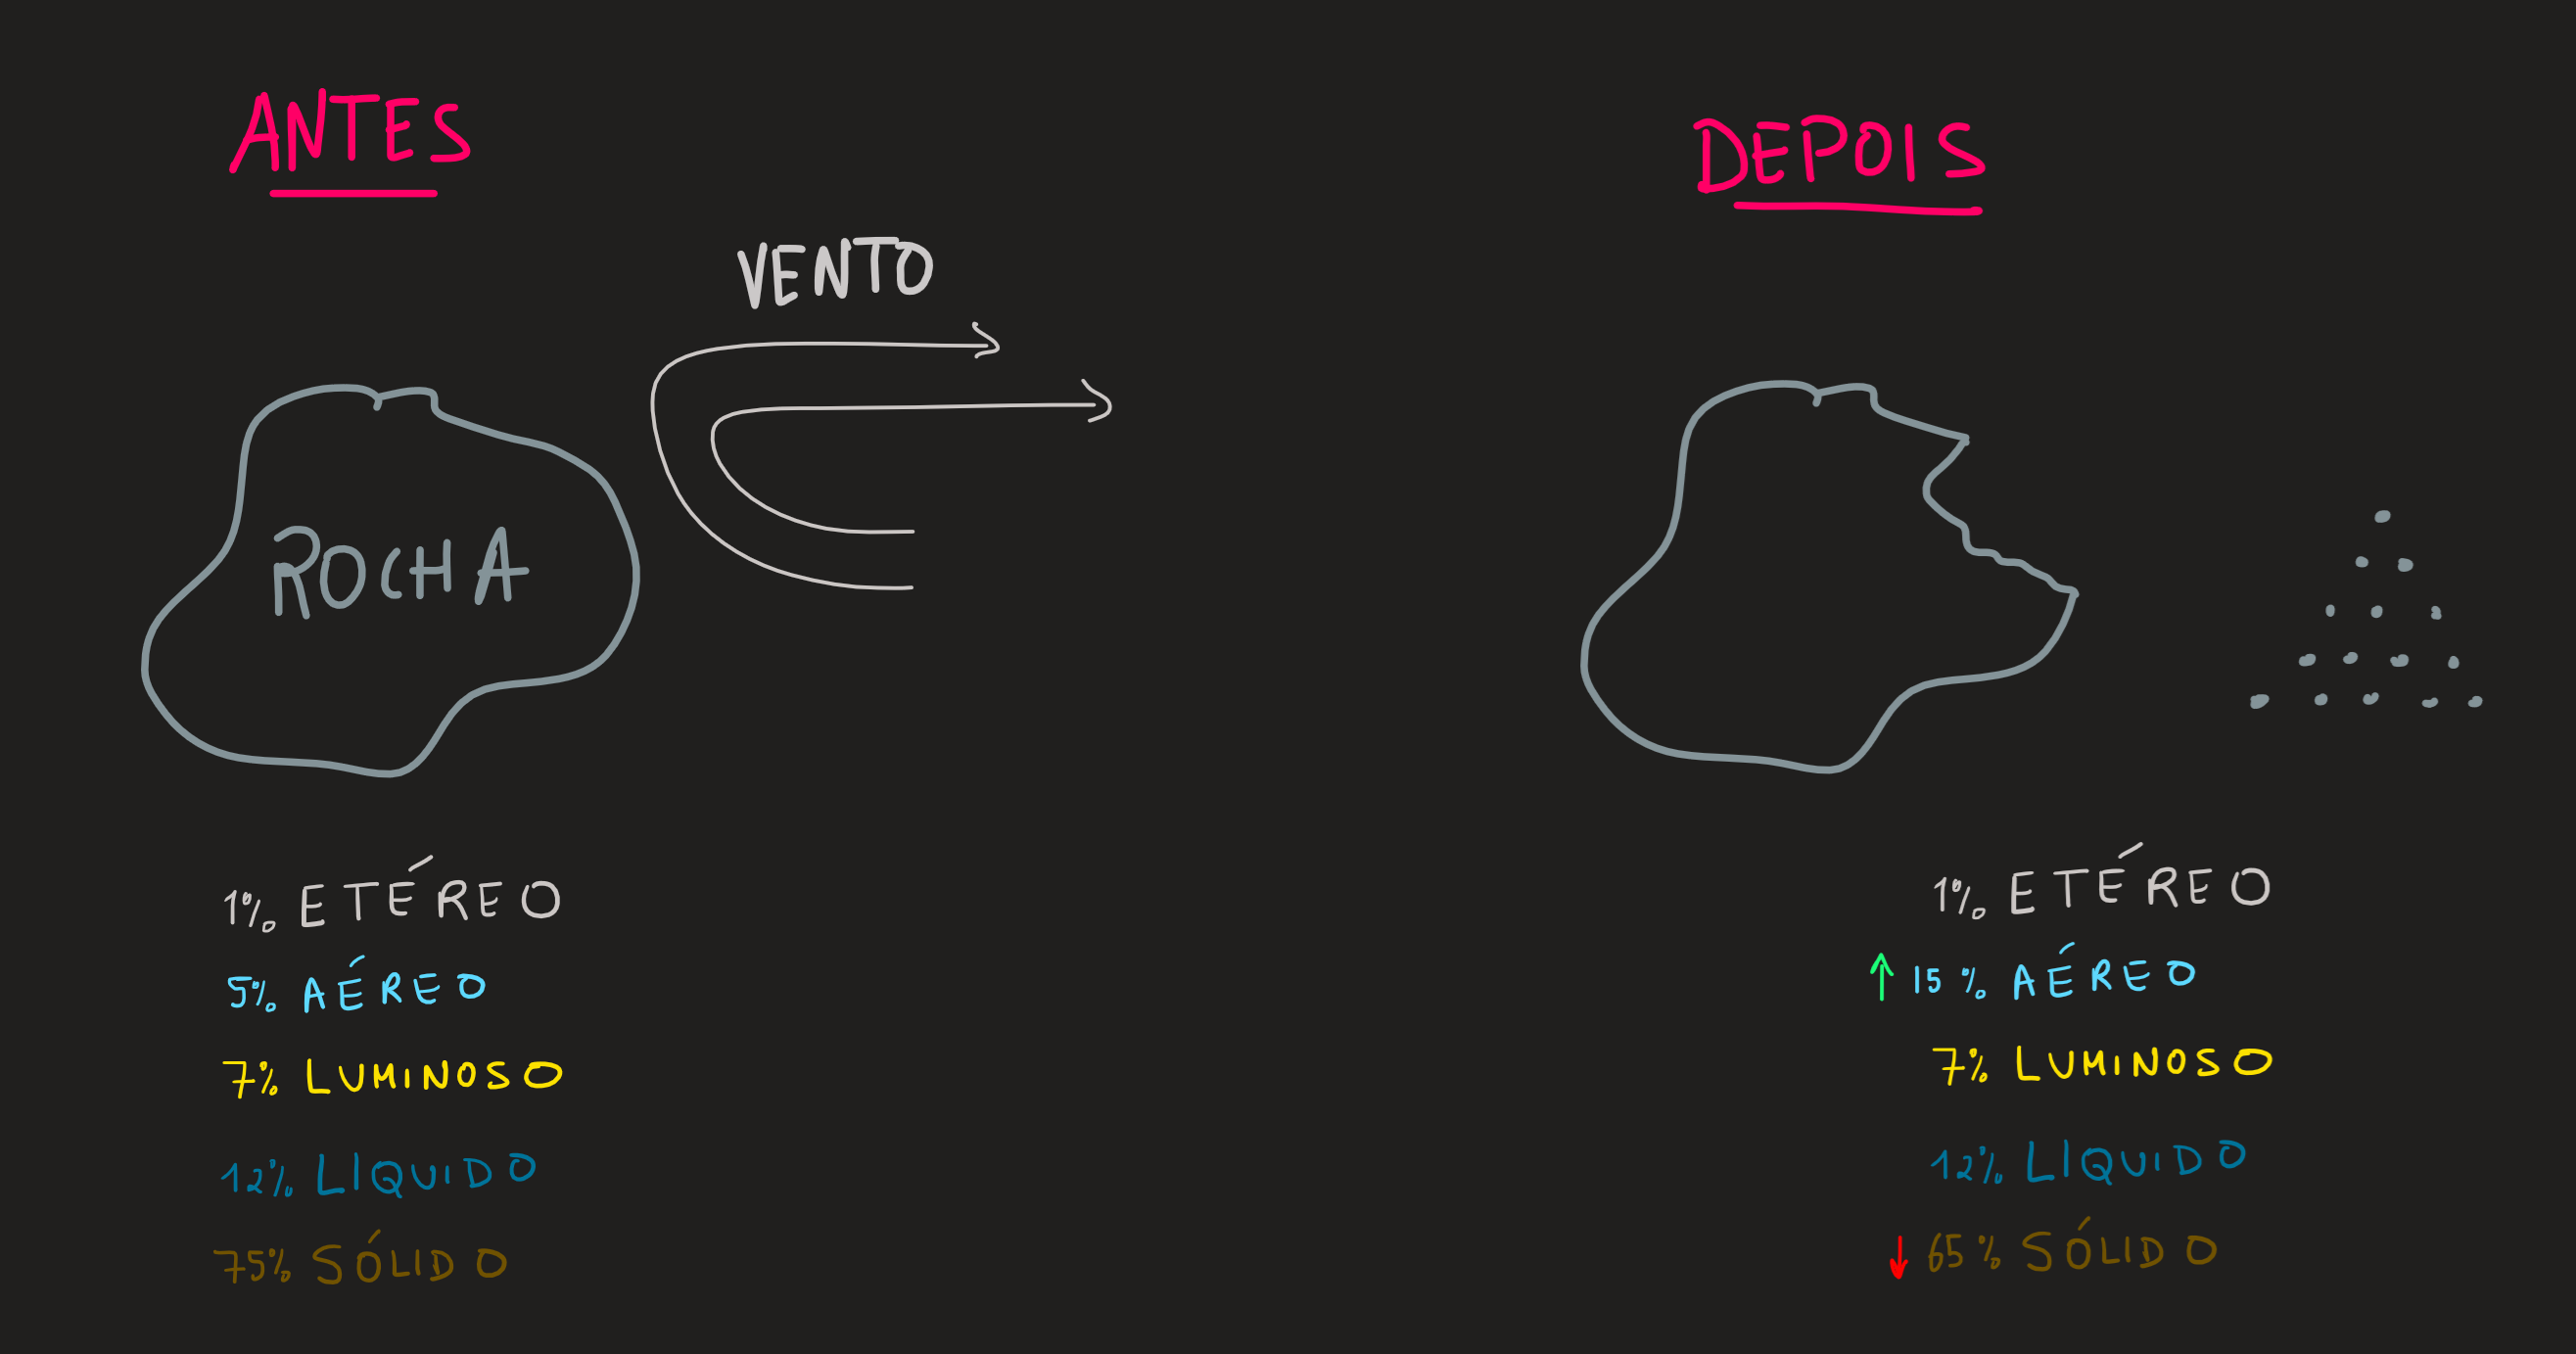 ANTES
VENTO
ROCHA
1% ETÉREO
5% AÉREO
7% LUMINOSO
12% LIQUIDO
75% SÓLIDO
DEPOIS
1% ETÉREO
15% AÉREO
7% LUMINOSO
12% LIQUIDO
65% SÓLIDO